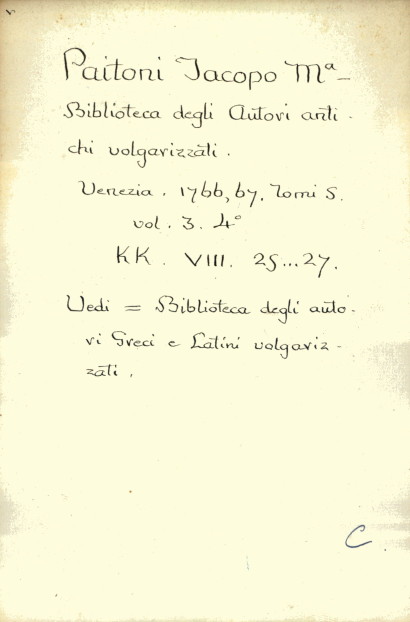 Paitoni Jacopo Mª_
Biblioteca degli Autori anti-
chi volgarizzati.
Venezia. 1766, 67. Tomi 5.
vol. 3. 4°
KK. VIII. 25...27.
Vedi = Biblioteca degli auto-
ri Greci e Latini volgariz-
zati.
C